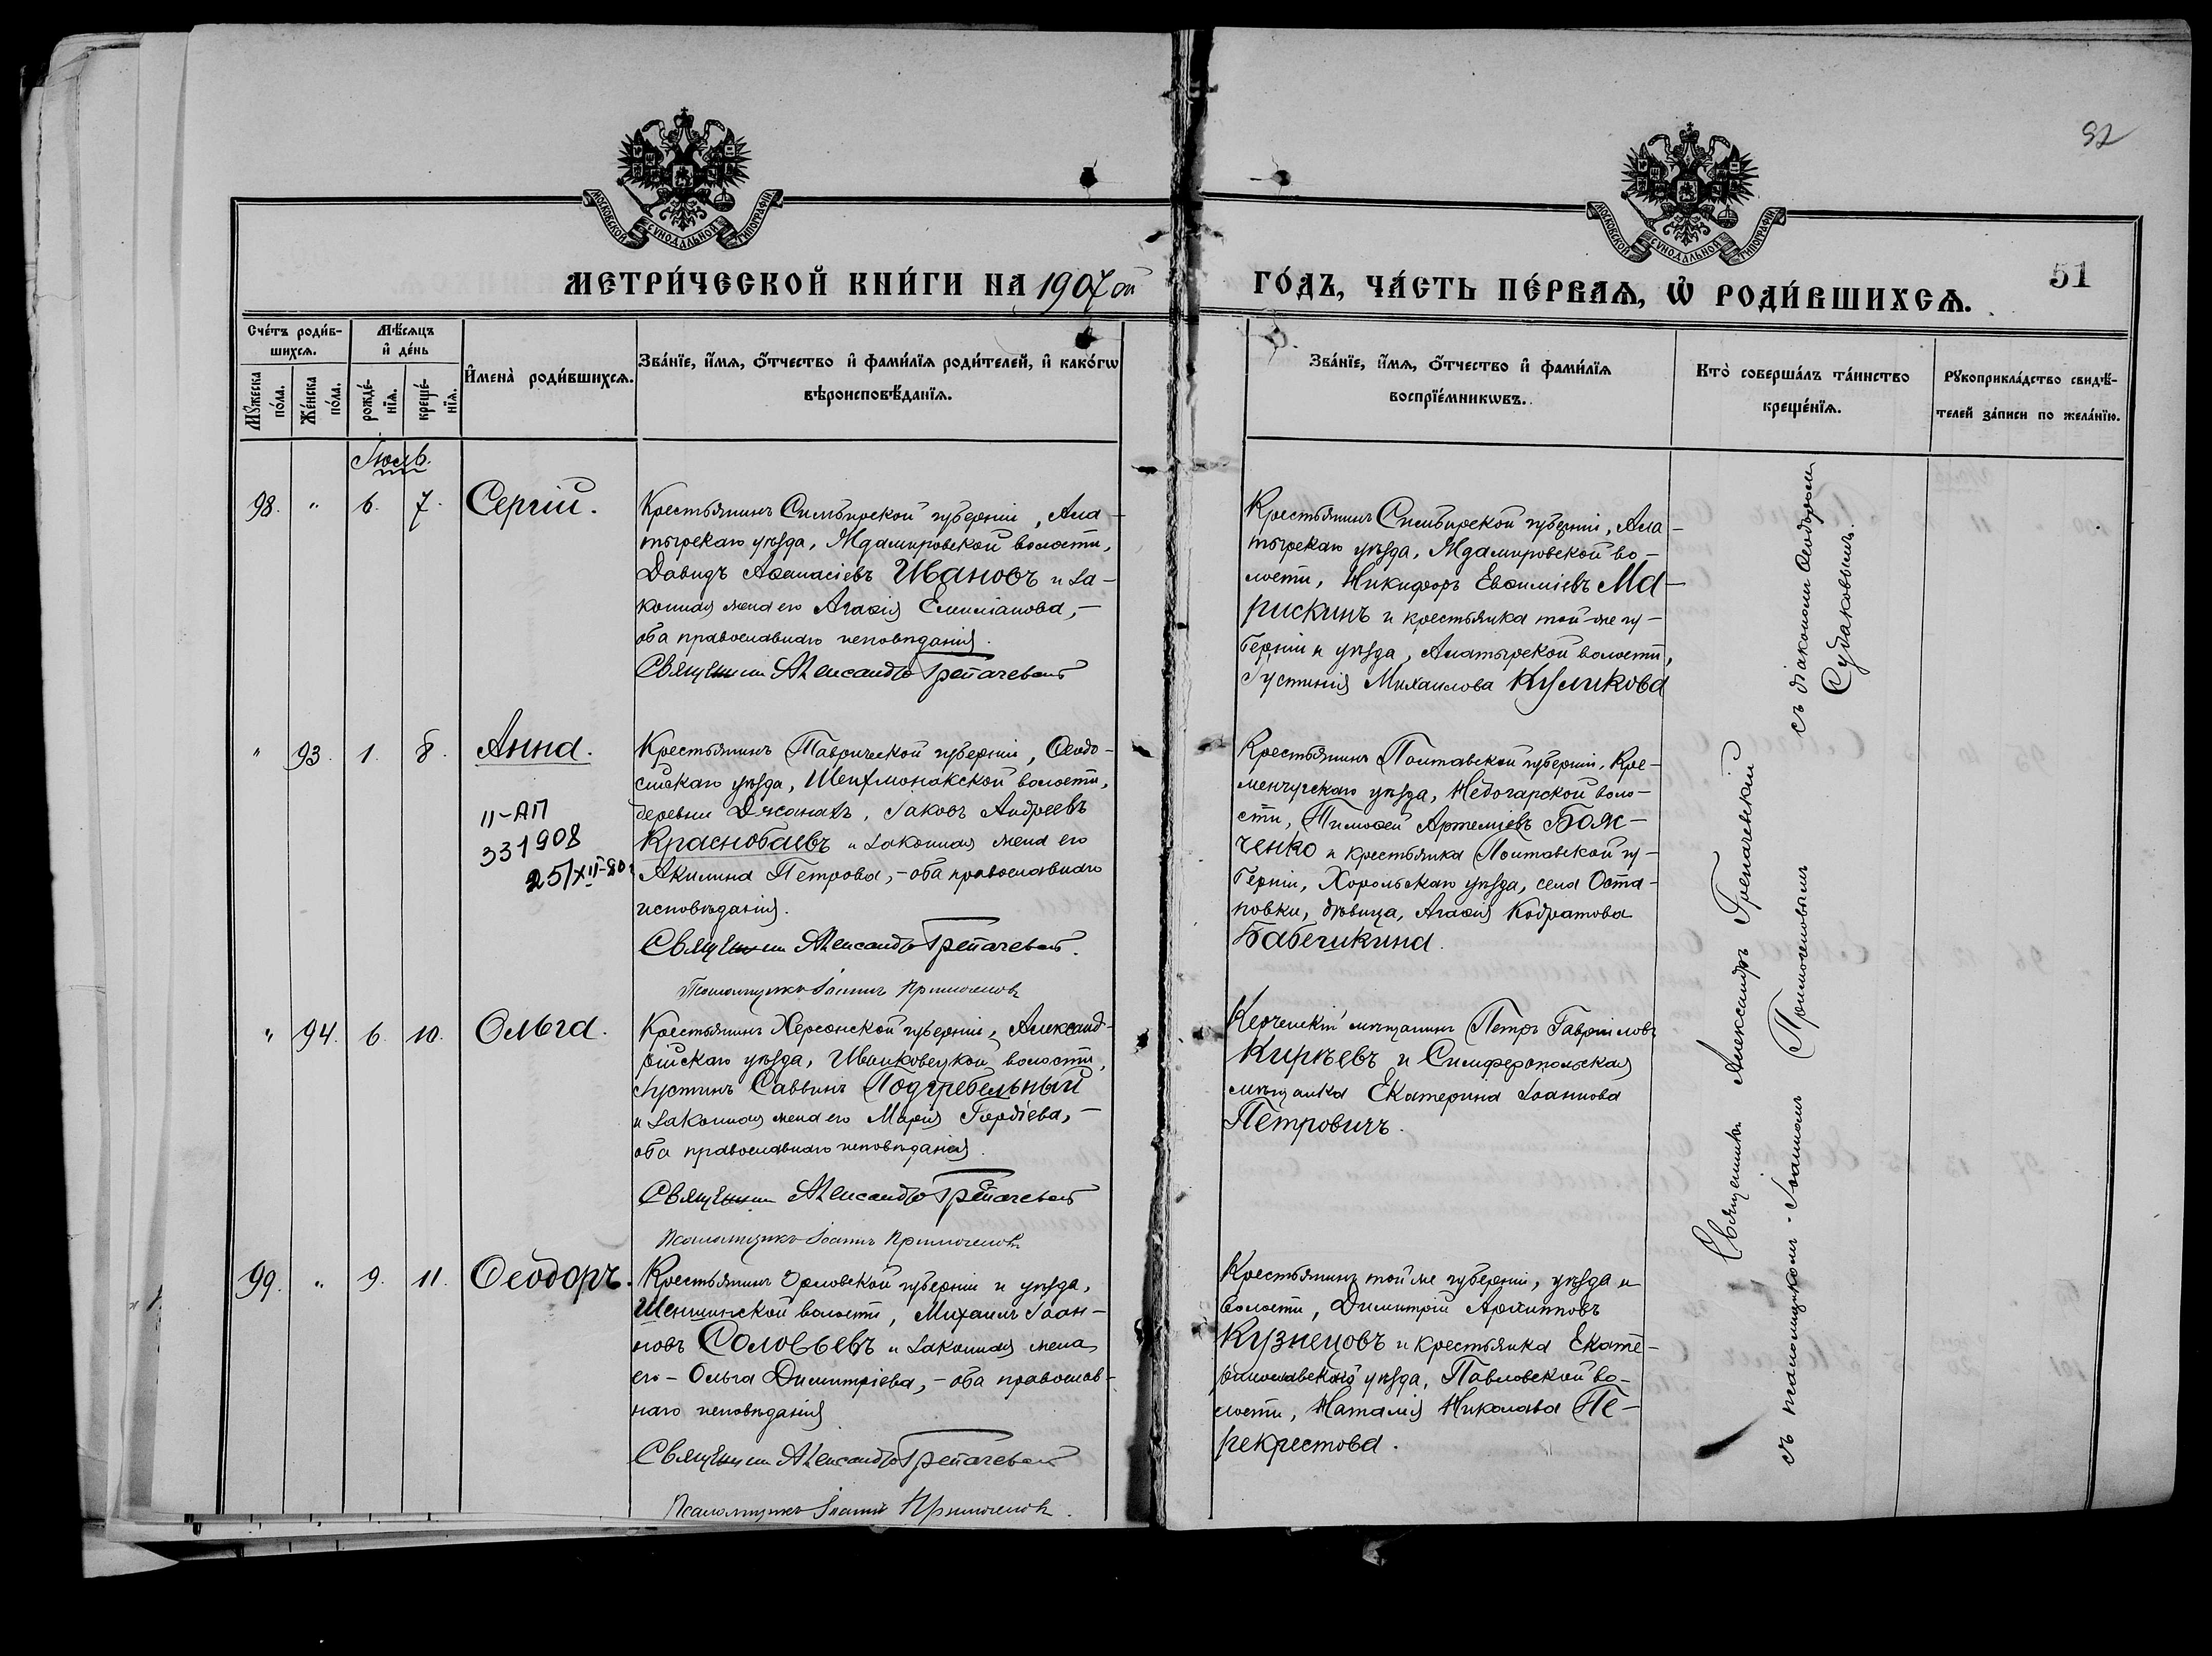 92
МОСКОВСКОЙ СѴНОДАЛЬНОЙ ТИПОГРАФІИ
МОСКОВСКОЙ СѴНОДАЛЬНОЙ ТИПОГРАФІИ
МЕТРИ́ЧЕСКОЙ КНИ́ГИ НА 1907 ой
ГО́ДЪ, ЧА́СТЬ ПЕ́РВАѦ, Ѽ РОДИ́ВШИХСѦ.
51
Сче́тъ роди́в-
шихсѧ.
Мꙋ́жеска по́ла.
Же́нска по́ла.
Мѣ́сѧцъ и҆ де́нь
рожде́-нїѧ.
креще́-нїѧ.
И҆мена̀ роди́вшихсѧ.
Зва́нїе, и҆́мѧ, ѻ҆́тчество и҆ фами́лїѧ роди́телей, и҆ како́гѡ
вѣроисповѣ́данїѧ.
Зва́нїе, и҆́мѧ, ѻ҆́тчество и҆ фами́лїѧ
воспрїе́мникѡвъ.
Кто̀ соверша́лъ та́инство
креще́нїѧ.
Рꙋкоприкла́дство свидѣ́-
телей за́писи по жела́нїю.
Іюль.
98. " 6. 7. Сергій.
Крестьянинъ Симбирской губерніи, Ала-
тырскаго уѣзда, Мдамировской волости,
Давидъ Аѳанасіевъ Ивановъ и за-
конная жена его Агаѳія Емиліанова,-
оба православнаго исповѣданія.
Священникъ Александръ Трепачевскій
Крестьянинъ Симбирской губерніи, Ала-
тырскаго уѣзда, Мдамировской во-
лости, Никифоръ Евѳиміевъ Ма-
рискинъ и крестьянка той-же гу-
берніи и уѣзда, Алатырской волости,
Іустинія Михаилова Куликова
" 93. 1. 8. Анна.
II-АП
331908
25/XII-80г
Крестьянинъ Таврической губерніи, Ѳеодо-
сійскаго уѣзда, Шейхмонакской волости,
деревни Джанакъ, Іаковъ Андреевъ
Краснобаевъ и законная жена его
Акилина Петрова,-оба православнаго
исповѣданія.
Священникъ Александръ Трепачевскій.
Псаломщикъ Іоаннъ Примогеновъ
Крестьянинъ Полтавской губерніи, Кре-
менчугскаго уѣзда, Недогарской воло-
сти, Тимоѳей Артеміевъ Бож-
ченко и крестьянка Полтавской гу-
берніи, Хорольскаго уѣзда, села Оста-
повки, дѣвица, Агаѳія Кодратова
Бабешкина.
" 94. 6. 10. Ольга.
Крестьянинъ Херсонской губерніи, Александ-
рійскаго уѣзда, Иванковецкой волости,
Іустинъ Саввинъ Подгребельный
и законная жена его Марія Гордіева,-
оба православнаго исповѣданія.
Священникъ Александръ Трепачевскій
Псаломщикъ Іоаннъ Примогеновъ
Керченскій мѣщанинъ Петръ Гавріиловъ
Кирѣевъ и Симферопольская
мѣщанка Екатерина Іоаннова
Петровичъ.
99. " 9. 11. Ѳеодоръ.
Крестьянинъ Орловской губерніи и уѣзда,
Шеншинской волости, Михаилъ Іоан-
новъ Соловьевъ и законная жена
его-Ольга Димитріева,-оба православ-
наго исповѣданія
Священникъ Александръ Трепачевскій
Псаломщикъ Іоаннъ Примогеновъ.
Крестьянинъ той же губерніи, уѣзда и
волости, Димитрій Архипповъ
Кузнецовъ и крестьянка Екате-
ринославскаго уѣзда, Павловской во-
лости, Наталія Николаева Пе-
рекрестова.
Священникъ Александръ Трепачевскій
съ діакономъ Ѳеодоромъ
Судаковымъ.
съ псаломщикомъ Іоанномъ Примогеновымъ